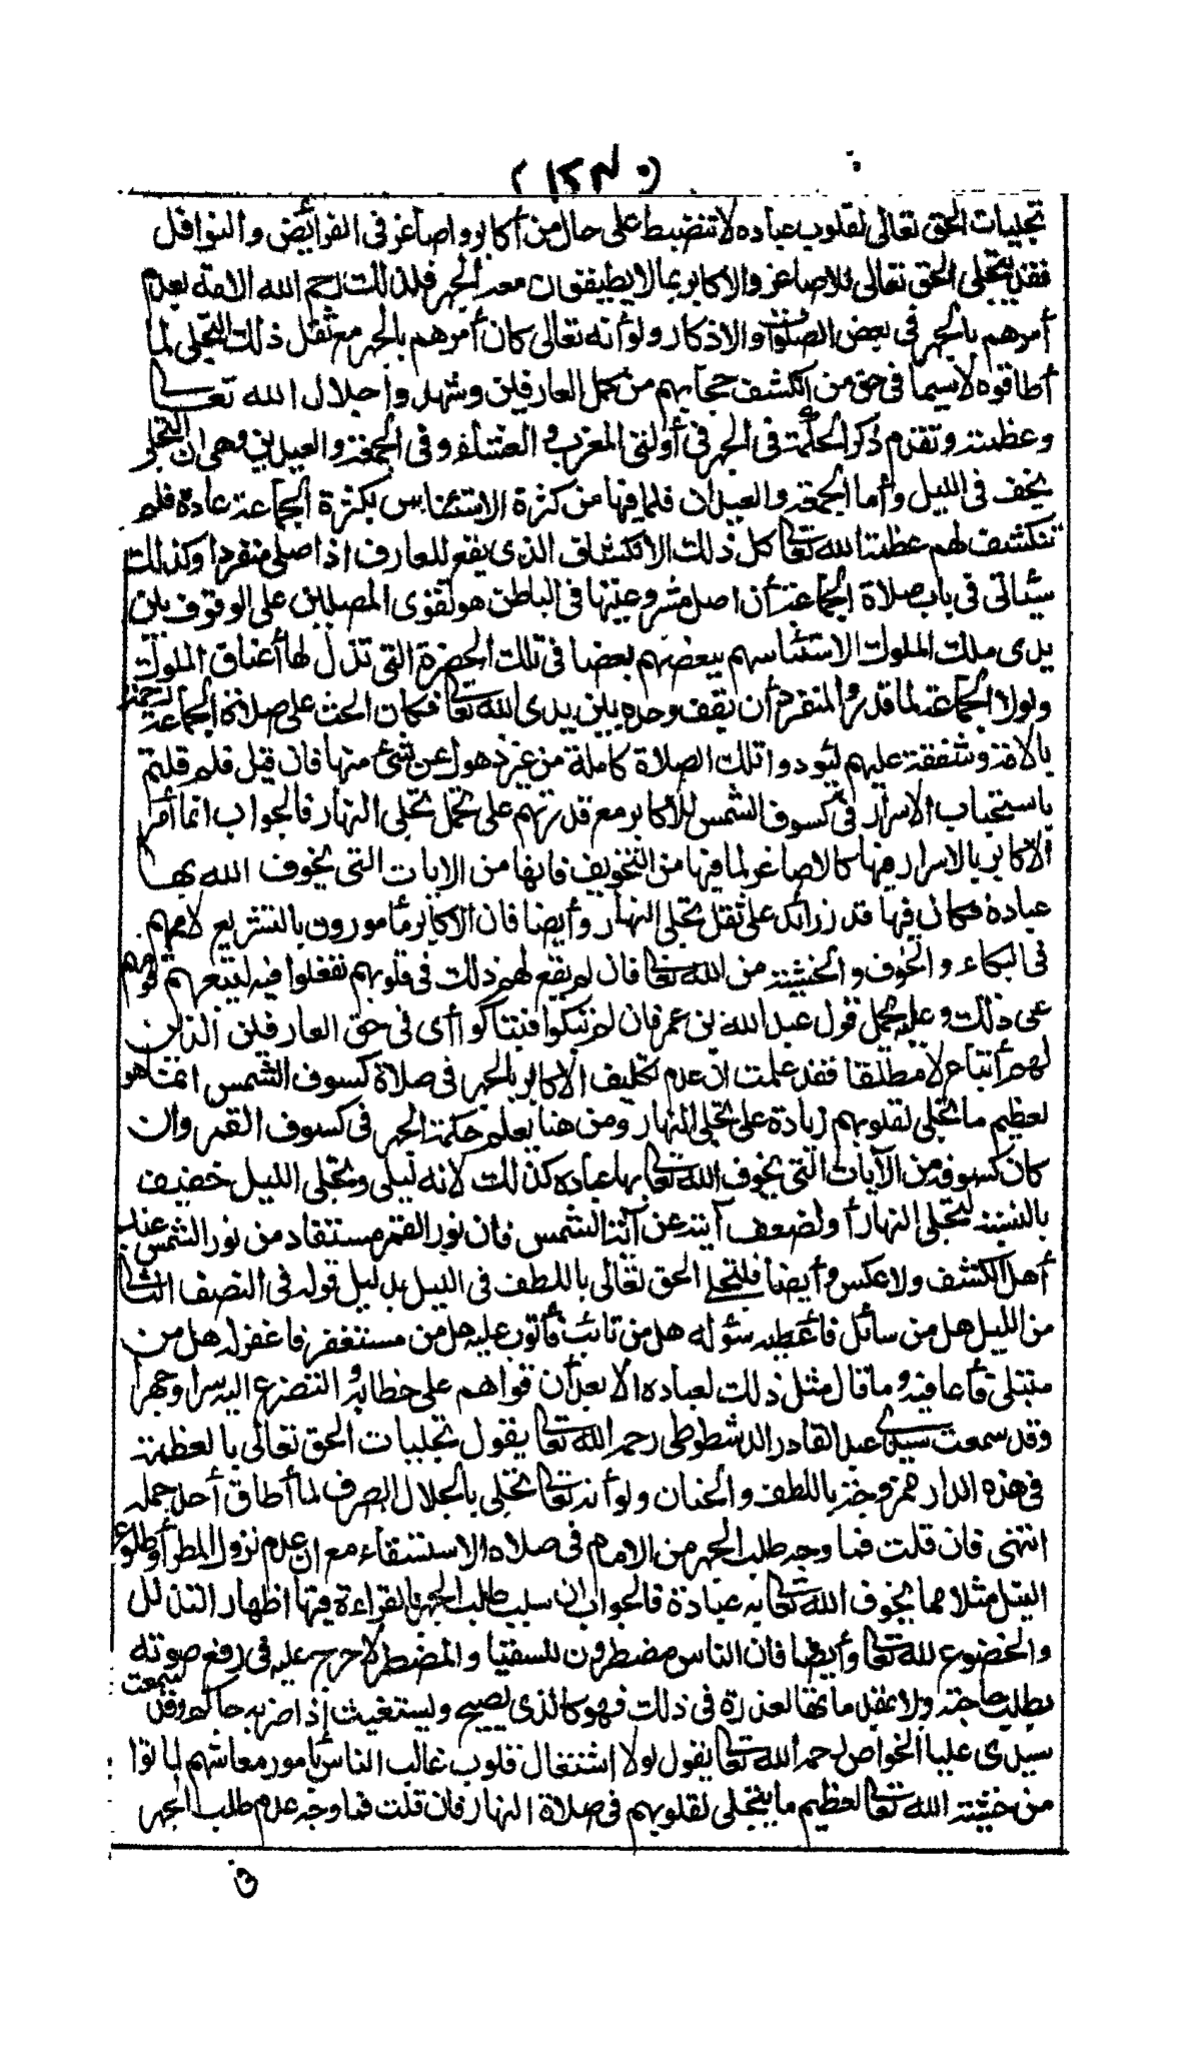 (١٣٠)
تجليات الحق تعالى لقلوب عباده لا تنضبط على حال من أكابر واصاغر فى الفرائض والنوافل
فقد يتجلى الحق تعالى للاصاغر والاكابر بما لا يطيقون معه الجهر فلذلك رحم الله الامة بعدم
أمرهم بالجهر فى بعض الصلوات والاذكار ولو أنه تعالى كان أمرهم بالجهر مع ثقل ذلك التجلى لما
أطاقوه لاسيما فى حق من انكشف حجابهم من كمل العارفين وشهدوا جلال الله تعالى
وعظمته وتقدم ذكر الحكمة فى الجهر فى أولتى المغرب والعشاء وفى الجمعة والعيدين وهى ان التجلى
يخف فى الليل وأما الجمعة والعيدان فلما فيها من كثرة الاستئناس بكثرة الجماعة عادة فلم
تنكشف لهم عظمة الله تعالى كل ذلك الانكشاف الذى يقع للعارف اذا صلى منفردا وكذلك
سيأتى فى باب صلاة الجماعة أن اصل مشروعيتها فى الباطن هو تقوى المصلين على الوقوف بين
يدى ملك الملوك لاستئناسهم ببعضهم بعضا فى تلك الحضرة التى تذل لها أعناق الملوك
ولولا الجماعة لما قدر المنفرد أن يقف وحده بين يدى الله تعالى فكان الحث على صلاة الجماعة رحمة
بالامة وشفقة عليهم ليؤدوا تلك الصلاة كاملة من غير ذهول عن شئ منها فان قيل فلم قلتم
باستحباب الاسرار فى كسوف الشمس للأكابر مع قدرتهم على تحمل تجلى النهار فالجواب انما أمر
الأكابر بالاسرار فيها كالاصاغر لما فيها من التخويف فانها من الايات التى يخوف الله بها
عباده فكان فيها قدر زائد على ثقل تجلى النهار وأيضا فان الاكابر مأمورون بالتشريع لاممهم
فى البكاء والخوف والخشية من الله تعالى فان لم يقع لهم ذلك فى قلوبهم تفعلوا فيه ليتبعهم قومهم
على ذلك وعليه يحمل قول عبد الله بن عمر فان لم تبكوا فتباكوا أى فى حق العارفين الذين
لهم أتباع لا مطلقا فقد علمت ان عدم تكليف الأكابر بالجهر فى صلاة كسوف الشمس انما هو
لعظيم ما يتجلى لقلوبهم زيادة على تجلى النهار ومن هنا يعلم حكمة الجهر فى كسوف القمر وان
كان كسوفه من الآيات التى يخوف الله تعالى بها عباده كذلك لانه ليلى وتجلى الليل خفيف
بالنسبة لتجلى النهار أو لضعف آيته عن آية الشمس فان نور القمر مستفاد من نور الشمس عند
أهل الكشف ولا عكس وأيضا فلتجلى الحق تعالى باللطف فى الليل بدليل قوله فى النصف الثانى
من الليل هل من سائل فأعطيه سؤله هل من تائب فأتوب عليه هل من مستغفر فاغفر له هل من
مبتلى فأعافيه وما قال مثل ذلك لعباده الا بعد أن قواهم على خطابه والتضرع اليه سرا وجهرا
وقد سمعت سيدى عبد القادر الدشطوطى رحمه الله تعالى يقول تجليات الحق تعالى بالعظمة
فى هذه الدار ممزوجة باللطف والحنان ولو أنه تعالى تجلى بالجلال الصرف لما أطاق أحد حمله
انتهى فان قلت فما وجه طلب الجهر من الامام فى صلاة الاستسقاء مع ان عدم نزول المطر أو طلوع
النيل مثلا مما يخوف الله تعالى به عباده فالجواب ان سبب طلب الجهر بالقراءة فيها اظهار التذلل
والخضوع لله تعالى وأيضا فان الناس مضطرون للسقيا والمضطر لا حرج عليه فى رفع صوته
بطلب حاجته ولا عقل مانعا لعذره فى ذلك فهو كالذى يصيح ويستغيث إذا ضربه حاكم وقد سمعت
سيدى عليا الخواص رحمه الله تعالى يقول لولا اشتغال قلوب غالب الناس بأمور معاشهم لماتوا
من خشية الله تعالى لعظيم ما يتجلى لقلوبهم فى صلاة النهار فان قلت فما وجه عدم طلب الجهر
فى